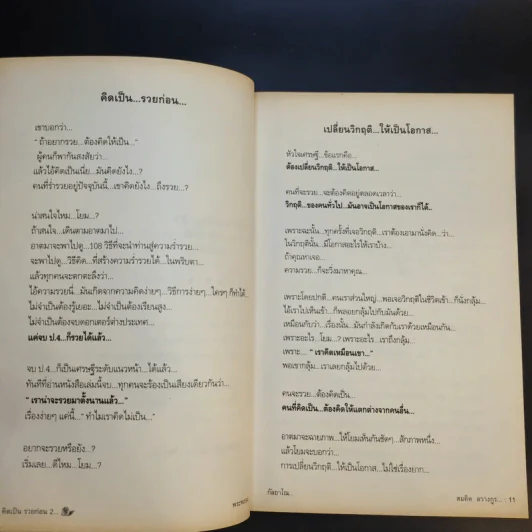 คิดเป็น...รวยก่อน...
เขาบอกว่า...
" ถ้าอยากรวย...ต้องคิดให้เป็น ..."
ผู้คนก็พากันสงสัยว่า...
แล้วไอ้คิดเป็นเนี่ย...มันคิดยังไง...?
คนที่ร่ำรวยอยู่ปัจจุบันนี้...เขาคิดยังไง...ถึงรวย...?
น่าสนใจไหม...โยม...?
ถ้าสนใจ...เดินตามอาตมาไป...
อาตมาจะพาไปดู...108 วิธีที่จะนำท่านสู่ความร่ำรวย...
จะพาไปดู...วิธีคิด...ที่สร้างความร่ำรวยได้...ในพริบตา...
แล้วทุกคนจะตกตะลึงว่า...
ไอ้ความรวยนี่...มันเกิดจากความคิดง่ายๆ ...วิธีการง่ายๆ...ใครๆ ก็ทำได้
ไม่จำเป็นต้องรู้เยอะ...ไม่จำเป็นต้องเรียนสูง...
ไม่จำเป็นต้องจบดอกเตอร์ต่างประเทศ...
แค่จบ ป.4...ก็รวยได้แล้ว...
จบ ป.4...ก็เป็นเศรษฐีระดับแนวหน้า...ได้แล้ว...
ทันทีที่อ่านหนังสือเล่มนี้จบ...ทุกคนจะร้องเป็นเสียงเดียวกันว่า...
" เราน่าจะรวยมาตั้งนานแล้ว..."
เรื่องง่ายๆ แค่นี้..." ทำไมเราคิดไม่เป็น..."
อยากจะรวยหรือยัง..?
เริ่มเลย...ดีไหม...โยม...?
คิดเป็น รวยก่อน 2...
เปลี่ยนวิกฤติ...ให้เป็นโอกาส...
หัวใจเศรษฐี...ข้อแรกคือ...
ต้องเปลี่ยนวิกฤติ...ให้เป็นโอกาส...
คนที่จะรวย...จะต้องคิดอยู่ตลอดเวลาว่า...
วิกฤติ...ของคนทั่วไป...มันอาจเป็นโอกาสของเราก็ได้...
เพราะฉะนั้น...ทุกครั้งที่เจอวิกฤติ...เราต้องเอามานั่งคิด...ว่า...
ในวิกฤตินั้น...มีโอกาสอะไรให้เราบ้าง...
ถ้าคุณหาเจอ...
ความรวย...ก็จะวิ่งมาหาคุณ...
เพราะโดยปกติ...คนเราส่วนใหญ่...พอเจอวิกฤติในชีวิตเข้า...ก็นั่งกลุ้ม...
ไอ้เราไปเห็นเข้า...ก็พลอยกลุ้มไปกับมันด้วย...
เหมือนกับว่า...เรื่องนั้น...มันกำลังเกิดกับเราด้วยเหมือนกัน...
เพราะอะไร...โยม...? เพราะอะไร...เราถึงกลุ้ม...
เพราะ... " เราคิดเหมือนเขา..."
พอเขากลุ้ม...เราเลยกลุ้มไปด้วย...
คนจะรวย...ต้องคิดเป็น...
คนที่คิดเป็น...ต้องคิดให้แตกต่างจากคนอื่น...
อาตมาจะฉายภาพ...ให้โยมเห็นกันชัดๆ...สักภาพหนึ่ง...
แล้วโยมจะบอกว่า...
การเปลี่ยนวิกฤติ...ให้เป็นโอกาส...ไม่ใช่เรื่องยาก...
กัลยาโณ...
สมคิด ลวางกูร... : 11